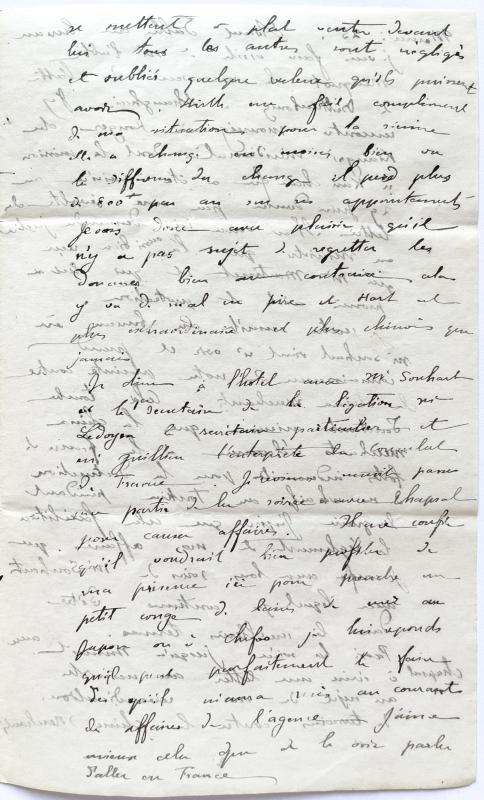 se mettent à plat ventre devant
lui tous les autres sont négligés
et oubliés quelque valeur qu'ils puissent
avoir. me fait compliment
de ma situation pour la sienne
elle a changé en moins bien vu
la différence du change il perd plus
de par an sur ses appointements
Je vois donc avec plaisir qu'il
n'y a pas sujet de regretter les
douanes bien au contraire cela
y va de mal en pire et Hart est
plus extraordinaire et plus chinois que
jamais
Je dîne à l'hotel avec Mr Souhart
et le secrétaire de la légation Mr
Ledoyen le secrétaire particulier et
Mr Guillien l'interprète du consulat
de France Je vais passer
une partie de la soirée Chapsal
pour causer affaires. Il me confie
qu'il voudrait bien profiter de
ma présence ici pour prendre un
petit congé de bains de mer au
Japon ou à Chefoo je lui reponds
qu'il peut parfaitement le faire
dès qu'il m'aura mis au courant
des affaires de l'agence J'aime
mieux cela que de le voir parler
d'aller en France